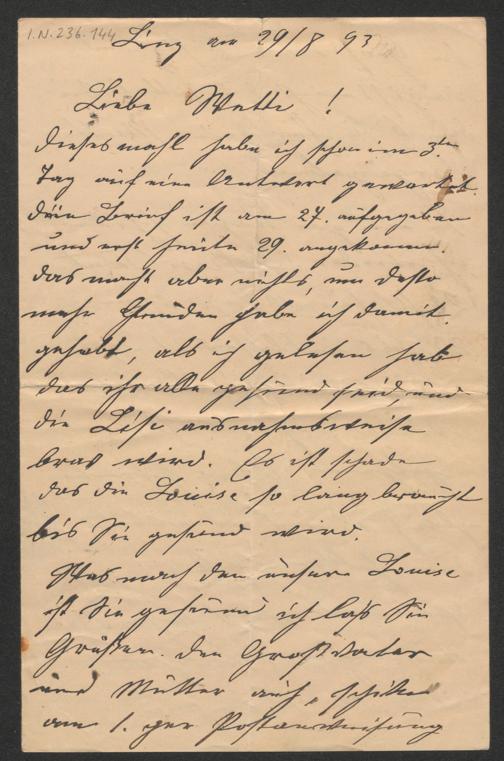 I.N. 236.144
Linz am 29/8 93
Liebe Wetti !
dieses mahl habe ich schon im 3ten
Tag auf eine Antwort gewartet.
dein Brief ist am 27. aufgegeben
und erst heute 29. angekommen.
das macht aber nichts, um desto
mehr Freuden habe ich damit
gehabt, als ich gelesen hab
das ihr alle gesund seid und
die Lisi ausnahmsweise
brav wird. Es ist schade
das die Louise so lang braucht
bis Sie gesund wird.
Was mach den unsere Louise
ist Sie gesund ich laß Sie
Grüßen. den Großvater
und Mutter auch, schike
am 1. per Postanweisung